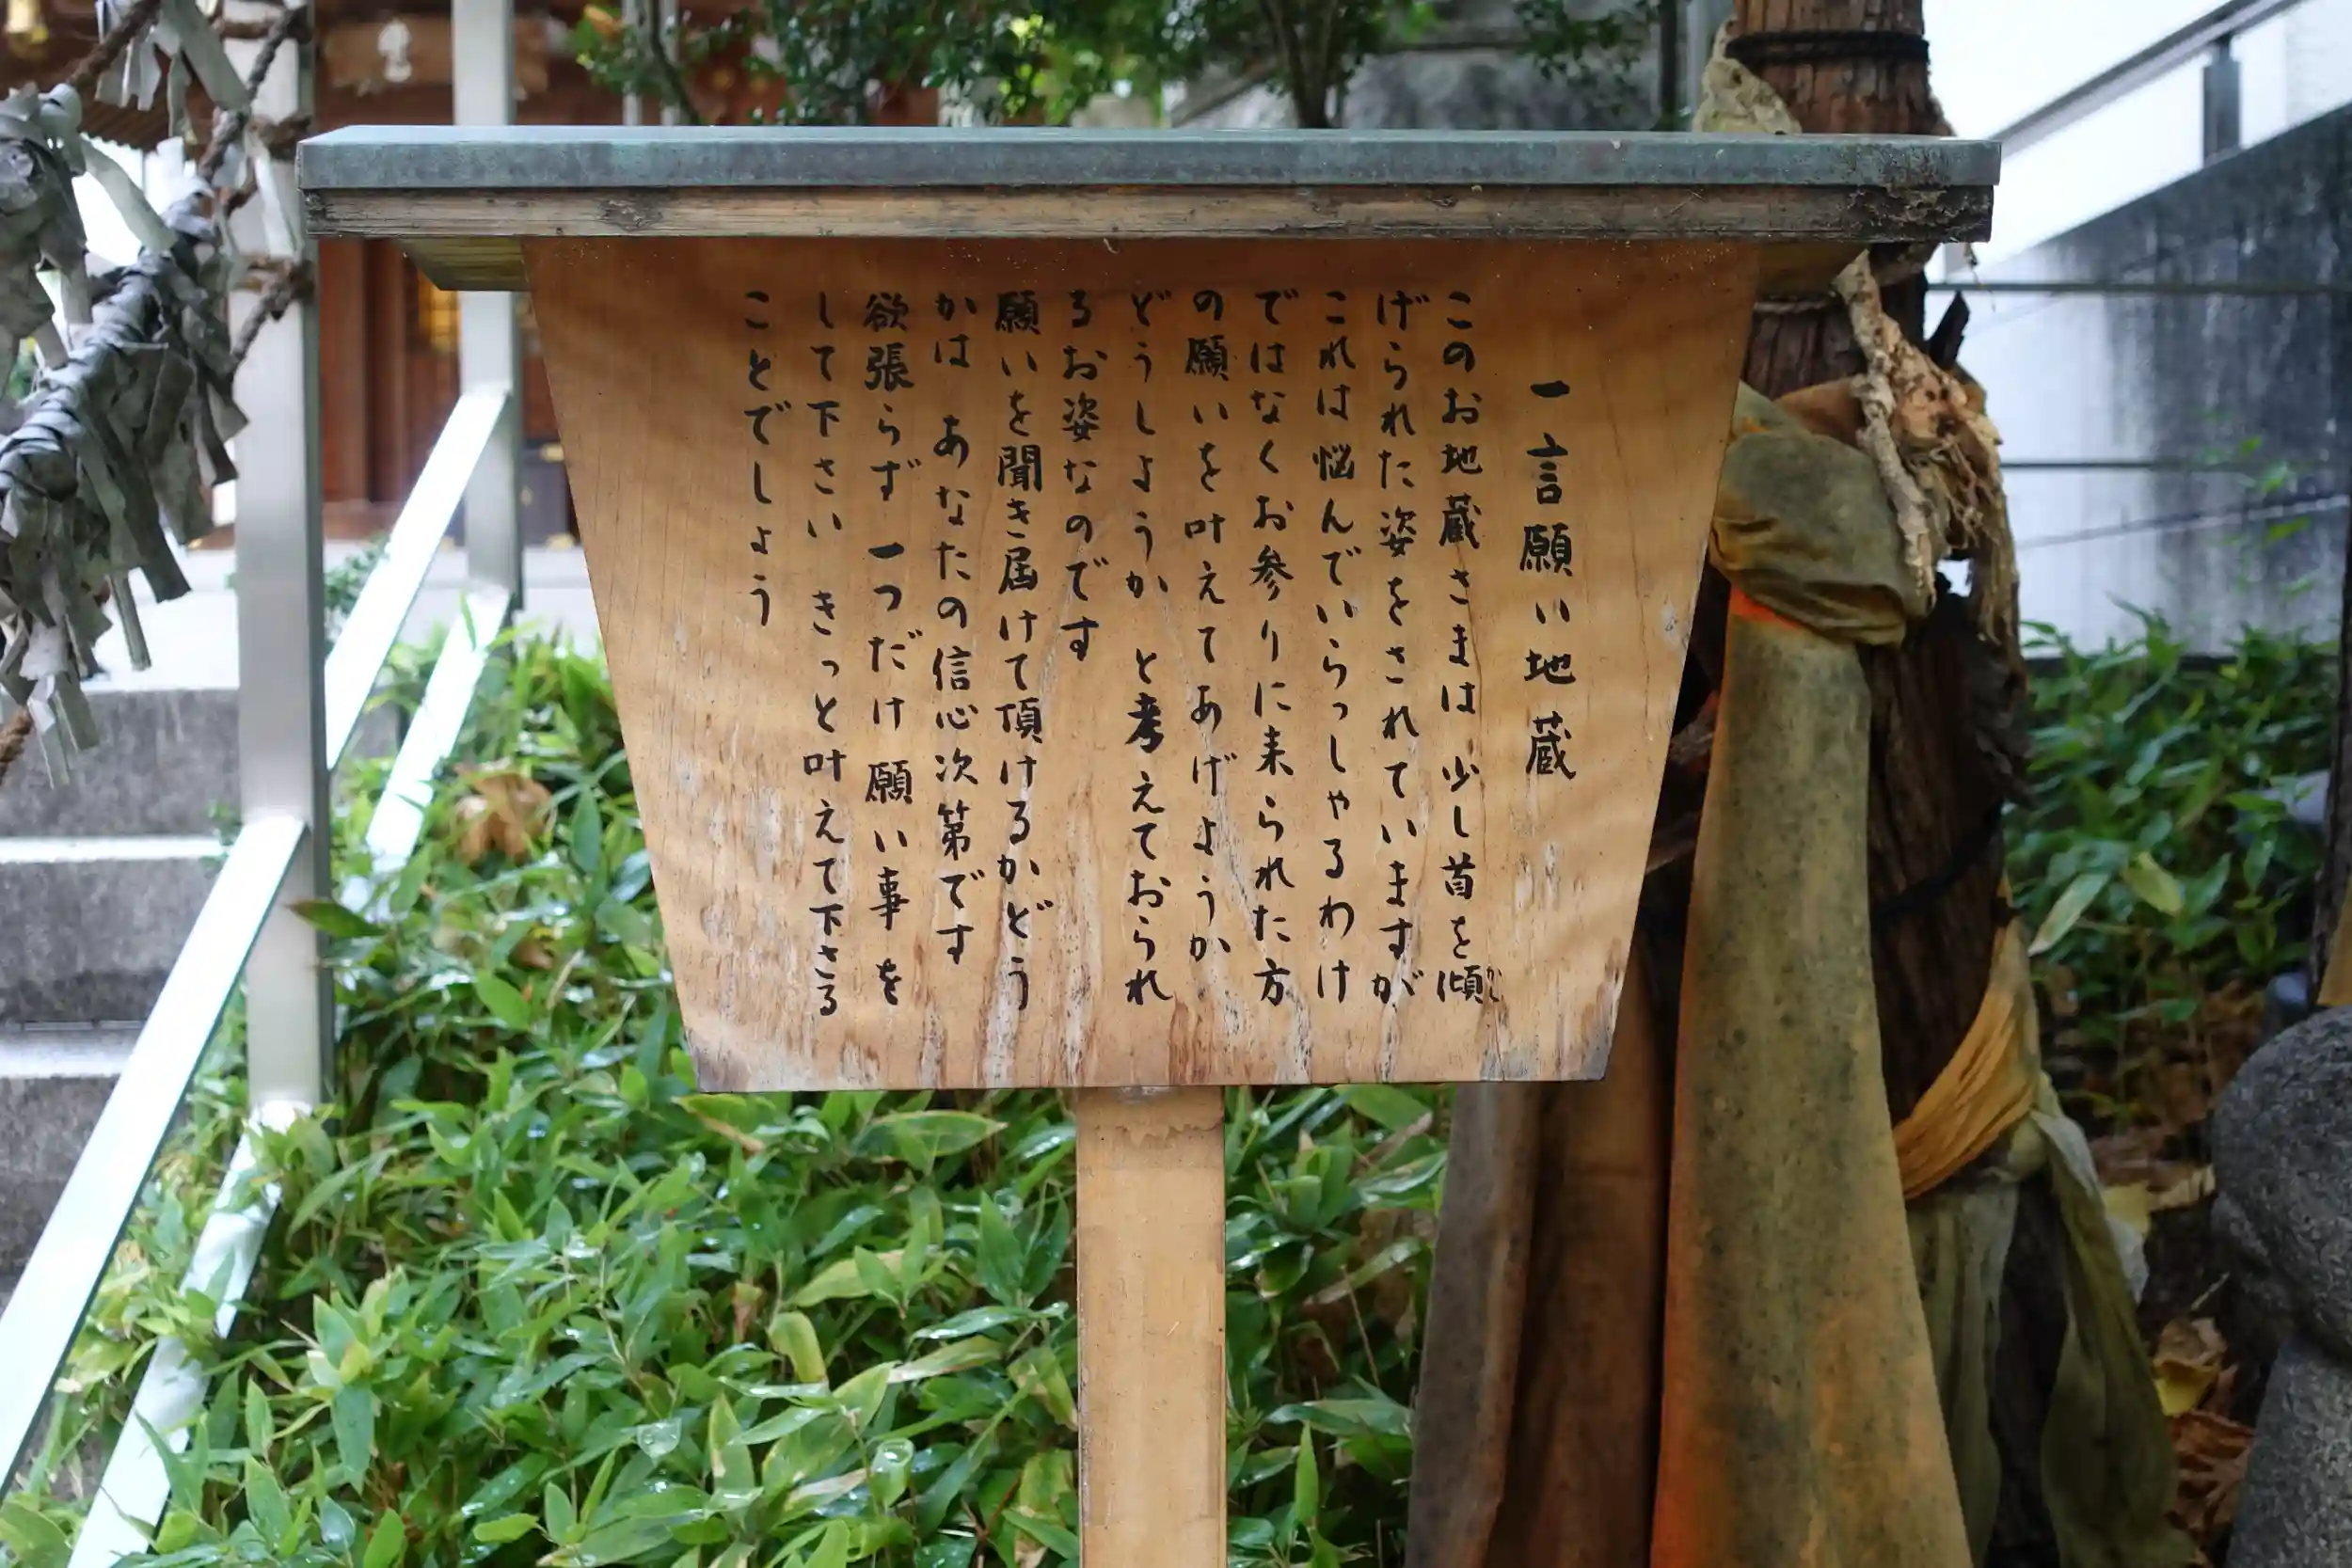 一言願い地蔵
このお地蔵さまは 少し首を傾
かし
げられた姿をされていますが
これは悩んでいらっしゃるわけ
ではなくお参りに来られた方
の願いを叶えてあげようか
どうしようか と考えておられ
るお姿なのです
願いを聞き届けて頂けるかどう
かは あなたの信心次第です
欲張らず 一つだけ 願い事を
して下さい きっと叶えて下さる
ことでしょう